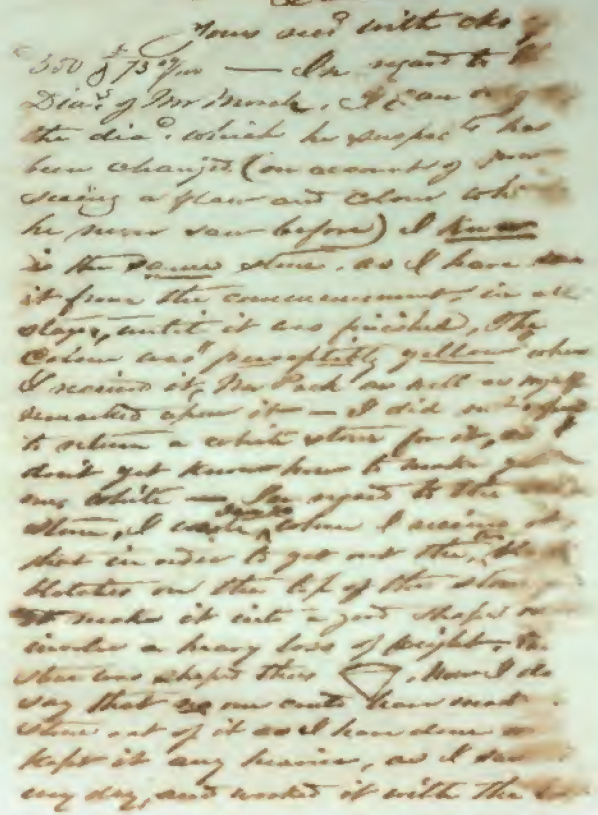 Yours recd with chq
In regard to the
Diads of Mr Morse, I can only
the diad. which he suspects has
been changed (on account of now
seeing a flaw and colour whi
he never saw before) I know
is the same stone, as I have seen
it from the commencement, in all
stages, until it was finished, The
Colour was perceptibly yellow when
I received it, Mr Pack as well as myself
remarked upon it — I did not expect
to return a white stone for it, as I
don't yet know how to make
ones white — In regard to the
stone, I wrote when I received it,
that in order to get out the
blotches on the top of the stone
& make it into a good shape
involve a heavy loss of weight. The
stone was shaped thus . Now I do
say that no one could have made
stone out of it as I have done or
kept it any heavier, as I saw
my day, and worked it with the